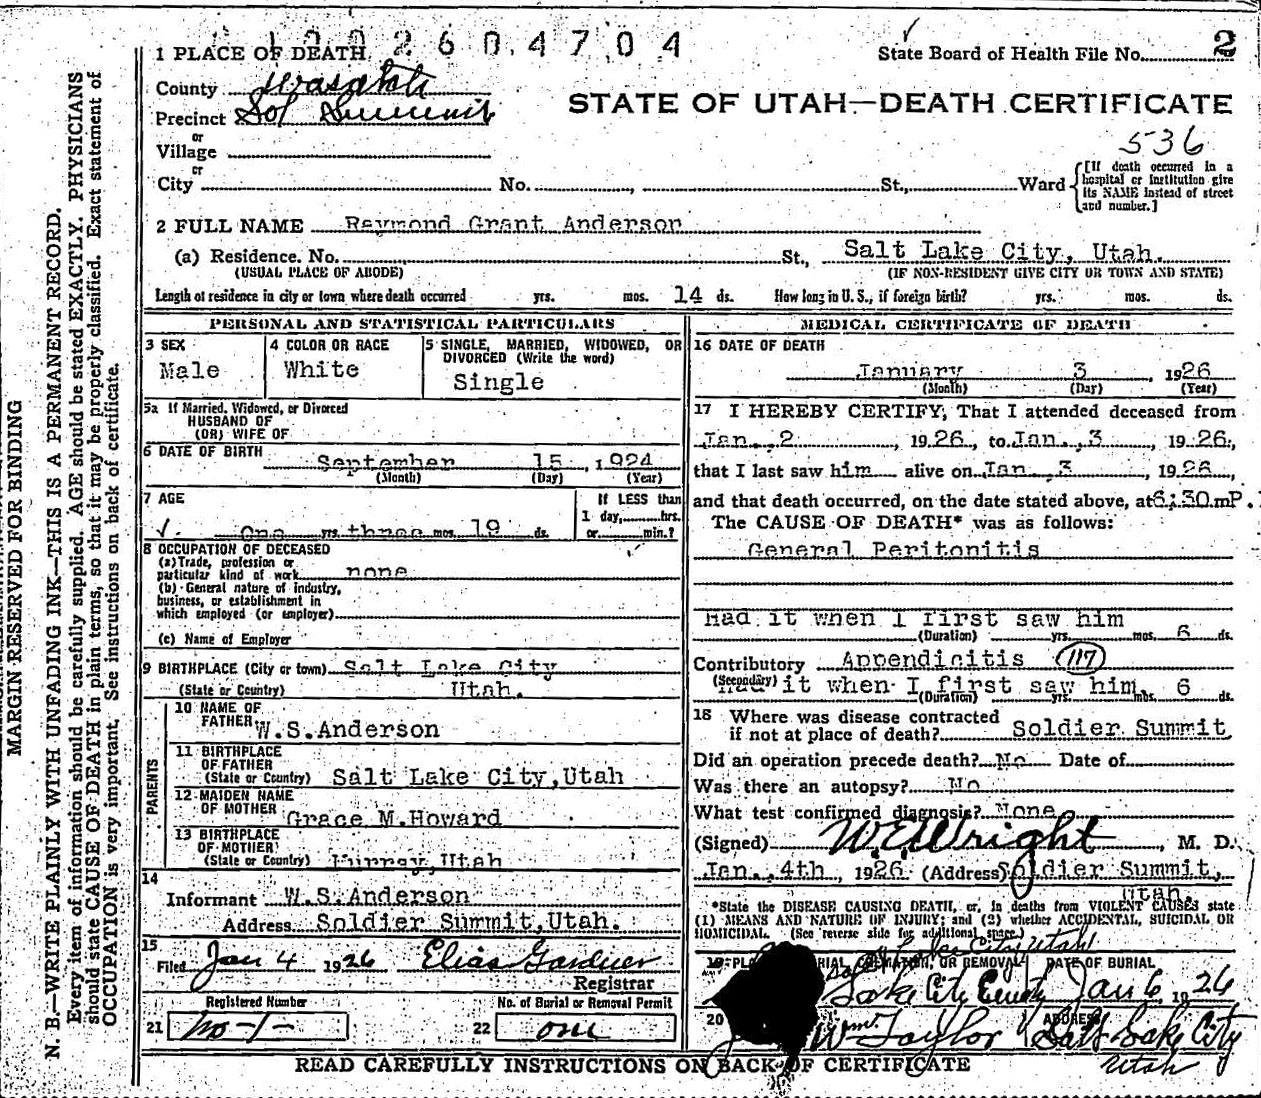 1 PLACE OF DEATH
State Board of Health File No. 2
County Wasatch
STATE OF UTAH—DEATH CERTIFICATE
Precinct Sol Summit
536
or
Village
or
City No. , St., Ward
[If death occurred in a hospital or institution give its NAME instead of street and number.]
2 FULL NAME Raymond Grant Anderson
(a) Residence. No. St., Salt Lake City, Utah.
(USUAL PLACE OF ABODE) (IF NON-RESIDENT GIVE CITY OR TOWN AND STATE)
Length of residence in city or town where death occurred yrs. mos. 14 ds. How long in U. S., if foreign birth? yrs. mos. ds.
PERSONAL AND STATISTICAL PARTICULARS
3 SEX
Male
4 COLOR OR RACE
White
5 SINGLE, MARRIED, WIDOWED, OR DIVORCED (Write the word)
Single
5a If Married, Widowed, or Divorced
HUSBAND OF
(OR) WIFE OF
6 DATE OF BIRTH September 15, 1924
(Month) (Day) (Year)
7 AGE
One yrs. three mos. 19 ds.
If LESS than
1 day, hrs.
or min.?
8 OCCUPATION OF DECEASED
(a) Trade, profession or
particular kind of work none
(b) General nature of industry,
business, or establishment in
which employed (or employer)
(c) Name of Employer
9 BIRTHPLACE (City or town) Salt Lake City
(State or Country) Utah.
PARENTS
10 NAME OF
FATHER W.S.Anderson
11 BIRTHPLACE
OF FATHER
(State or Country) Salt Lake City,Utah
12 MAIDEN NAME
OF MOTHER Grace M.Howard
13 BIRTHPLACE
OF MOTHER
(State or Country) Murray, Utah
14
Informant W.S.Anderson
Address Soldier Summit,Utah.
15
Filed Jan 4 1926 Elias Gardner
Registrar
Registered Number
21 No-1-
No. of Burial or Removal Permit
22 one
MEDICAL CERTIFICATE OF DEATH
16 DATE OF DEATH
January 3 1926
(Month) (Day) (Year)
17 I HEREBY CERTIFY, That I attended deceased from
Jan. 2, 1926, to Jan. 3, 1926,
that I last saw him alive on Jan. 3 1926,
and that death occurred, on the date stated above, at 6:30 mP.
The CAUSE OF DEATH* was as follows:
General Peritonitis
Had it when I first saw him
(Duration) yrs. mos. 6 ds.
Contributory Appendicitis 117
(Secondary) Had it when I first saw him. 6
(Duration) yrs. mos. ds.
18 Where was disease contracted
if not at place of death? Soldier Summit
Did an operation precede death? No Date of
Was there an autopsy? No
What test confirmed diagnosis? None
(Signed) W.E.Wright, M. D.
Jan. 4th, 1926 (Address) Soldier Summit,
Utah
*State the DISEASE CAUSING DEATH, or, in deaths from VIOLENT CAUSES state
(1) MEANS AND NATURE OF INJURY; and (2) whether ACCIDENTAL, SUICIDAL OR
HOMICIDAL. (See reverse side for additional space.)
CREMATION, OR REMOVAL DATE OF BURIAL
Lake City Jan 6, 1926
20 ADDRESS
Wm. Taylor Salt Lake City
Utah
READ CAREFULLY INSTRUCTIONS ON BACK OF CERTIFICATE
MARGIN RESERVED FOR BINDING
N. B.—WRITE PLAINLY WITH UNFADING INK—THIS IS A PERMANENT RECORD.
Every item of information should be carefully supplied. AGE should be stated EXACTLY. PHYSICIANS
should state CAUSE OF DEATH in plain terms, so that it may be properly classified. Exact statement of
OCCUPATION is very important. See instructions on back of certificate.